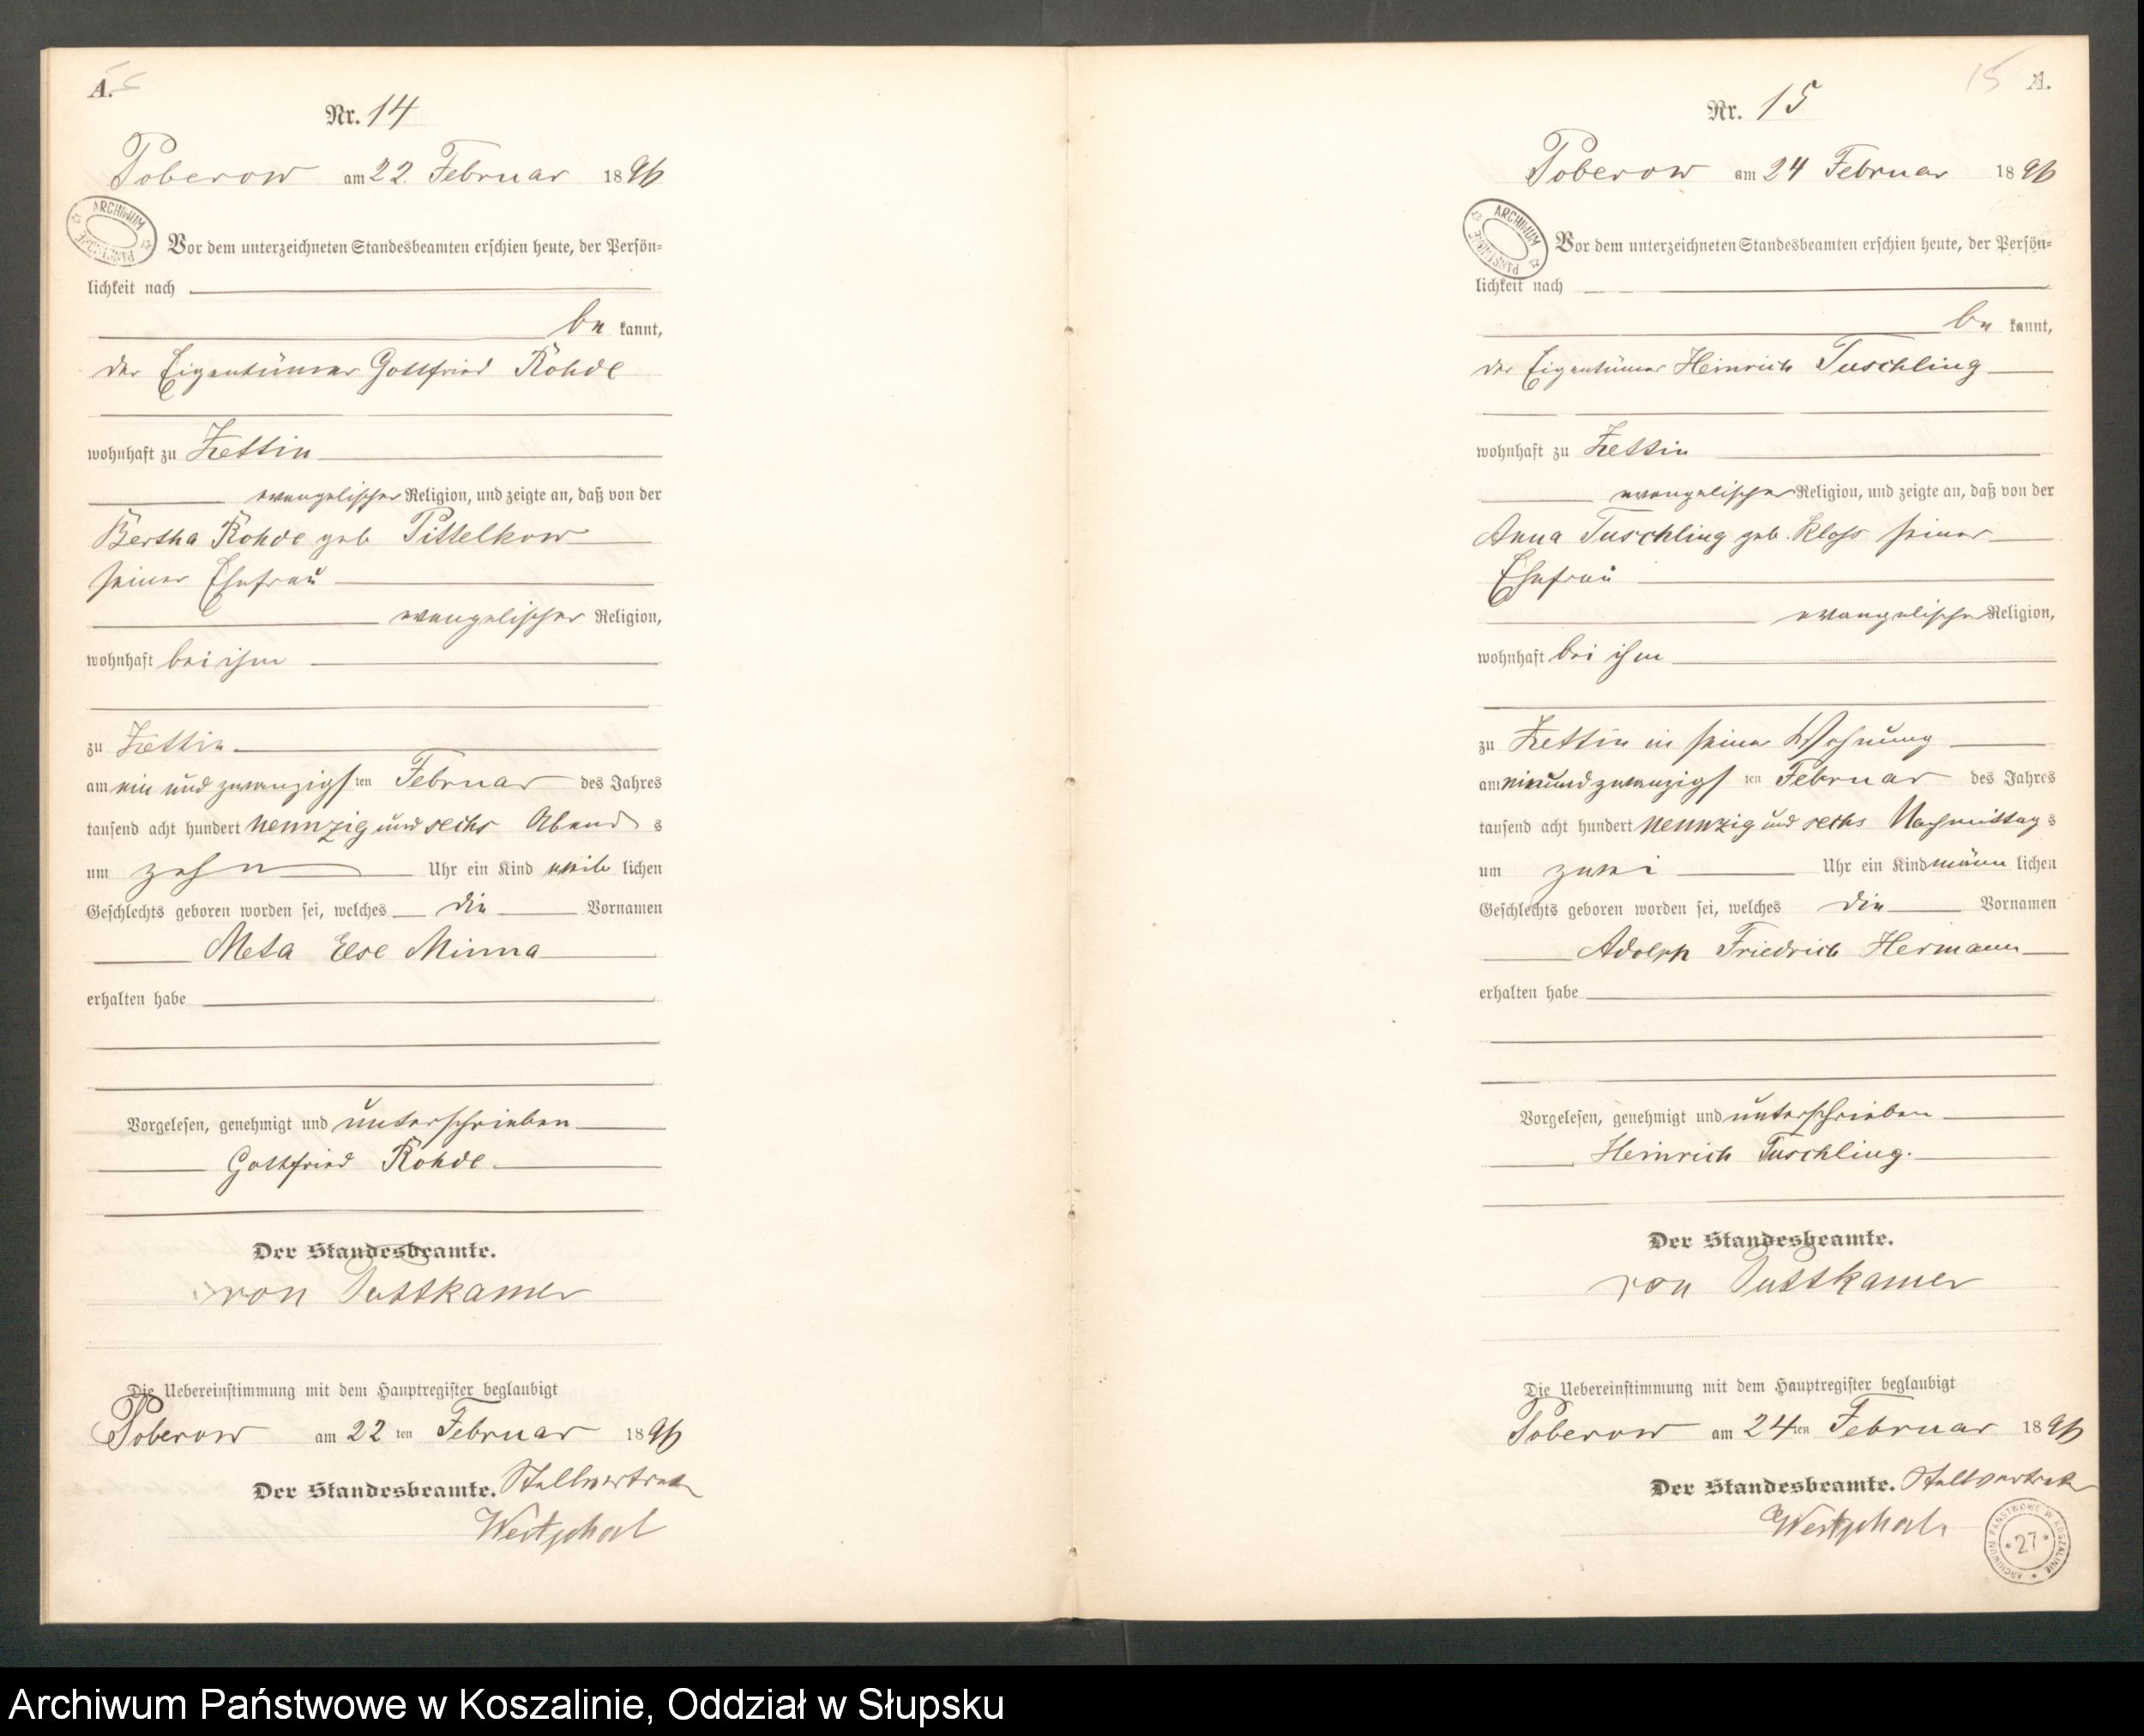 A.
Nr. 14
Poberow am 22. Februar 1896
ARCHIWUM PAŃSTWOWE
Vor dem unterzeichneten Standesbeamten erschien heute, der Persön=
lichkeit nach
be kannt,
der Eigentümer Gottfried Rohde
wohnhaft zu Zettin
evangelischer Religion, und zeigte an, daß von der
Bertha Rohde geb Pittelkow
seiner Ehefrau
evangelischer Religion,
wohnhaft bei ihm
zu Zettin
am ein und zwanzigsten Februar des Jahres
tausend acht hundert neunzig und sechs Abends
um zehn Uhr ein Kind weib lichen
Geschlechts geboren worden sei, welches die Vornamen
Meta Else Minna
erhalten habe
Vorgelesen, genehmigt und unterschrieben
Gottfried Rohde
Der Standesbeamte.
von Puttkamer
Die Uebereinstimmung mit dem Hauptregister beglaubigt
Poberow am 22 ten Februar 1896
Der Standesbeamte. Stellvertreter
Westphal
15 A.
Nr. 15
Poberow am 24 Februar 1896
ARCHIWUM PAŃSTWOWE
Vor dem unterzeichneten Standesbeamten erschien heute, der Persön=
lichkeit nach
be kannt,
der Eigentümer Heinrich Tuschling
wohnhaft zu Zettin
evangelischer Religion, und zeigte an, daß von der
Anna Tuschling geb. Kloss seiner
Ehefrau
evangelischer Religion,
wohnhaft bei ihm
zu Zettin in seiner Wohnung
am einundzwanzigs ten Februar des Jahres
tausend acht hundert neunzig und sechs Nachmittags
um zwei Uhr ein Kind männ lichen
Geschlechts geboren worden sei, welches die Vornamen
Adolph Friedrich Hermann
erhalten habe
Vorgelesen, genehmigt und unterschrieben
Heinrich Tuschling.
Der Standesbeamte.
von Puttkamer
Die Uebereinstimmung mit dem Hauptregister beglaubigt
Poberow am 24 ten Februar 1896
Der Standesbeamte. Stellvertreter
Westphal
ARCHIWUM PAŃSTWOWE W KOSZALINIE * 27 *
Archiwum Państwowe w Koszalinie, Oddział w Słupsku